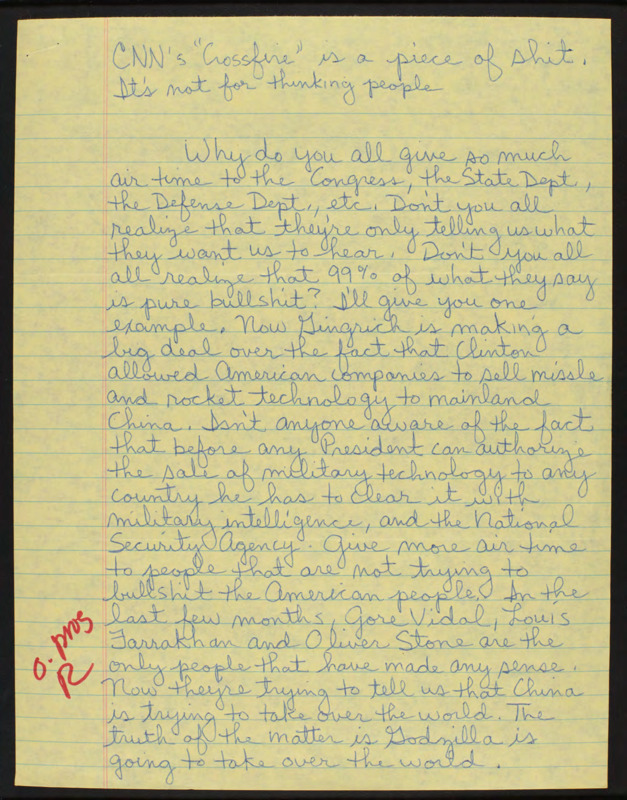 CNN's "Crossfire" is a piece of shit.
It's not for thinking people
Why do you all give so much
air time to the Congress, the State Dept.,
the Defense Dept., etc. Don't you all
realize that they're only telling us what
they want us to hear. Don't you all
all realize that 99% of what they say
is pure bullshit? I'll give you one
example. Now Gingrich is making a
big deal over the fact that Clinton
allowed American companies to sell missle
and rocket technology to mainland
China. Isn't anyone aware of the fact
that before any President can authorize
the sale of military technology to any
country he has to clear it with
military intelligence, and the National
Security Agency. Give more air time
to people that are not trying to
bullshit the American people. In the
last few months, Gore Vidal, Louis
Farrakhan and Oliver Stone are the
only people that have made any sense.
Now they're trying to tell us that China
is trying to take over the world. The
truth of the matter is Godzilla is
going to take over the world.